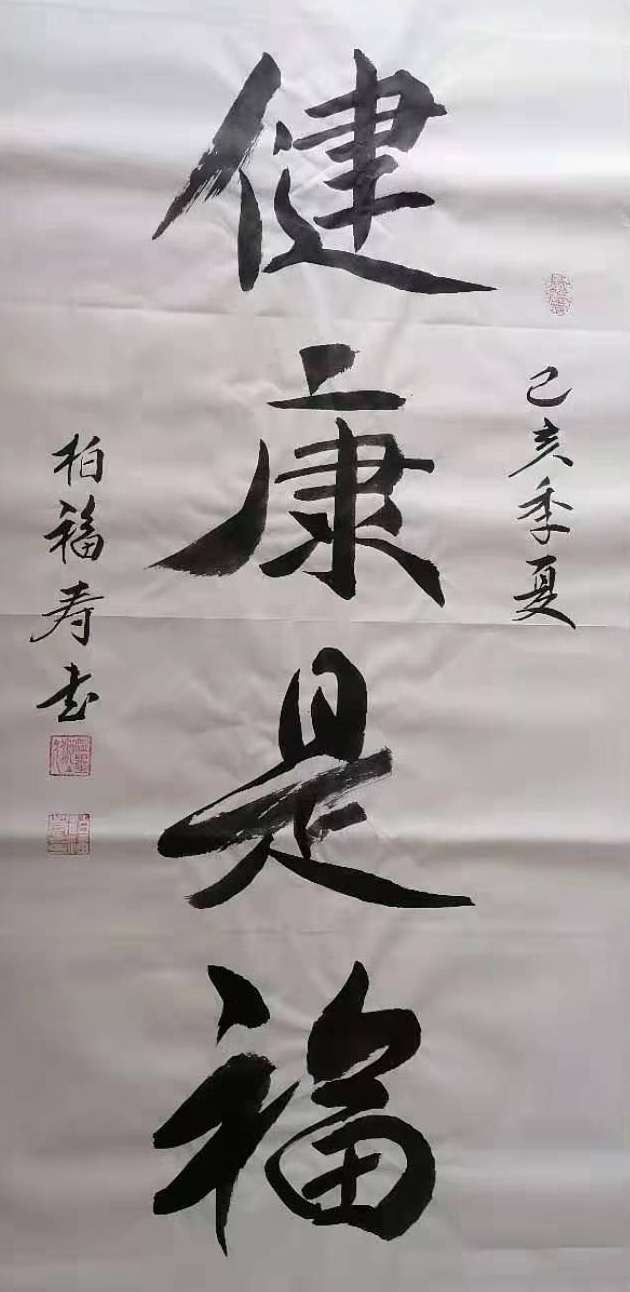 己亥季夏
健康是福
柏福寿书